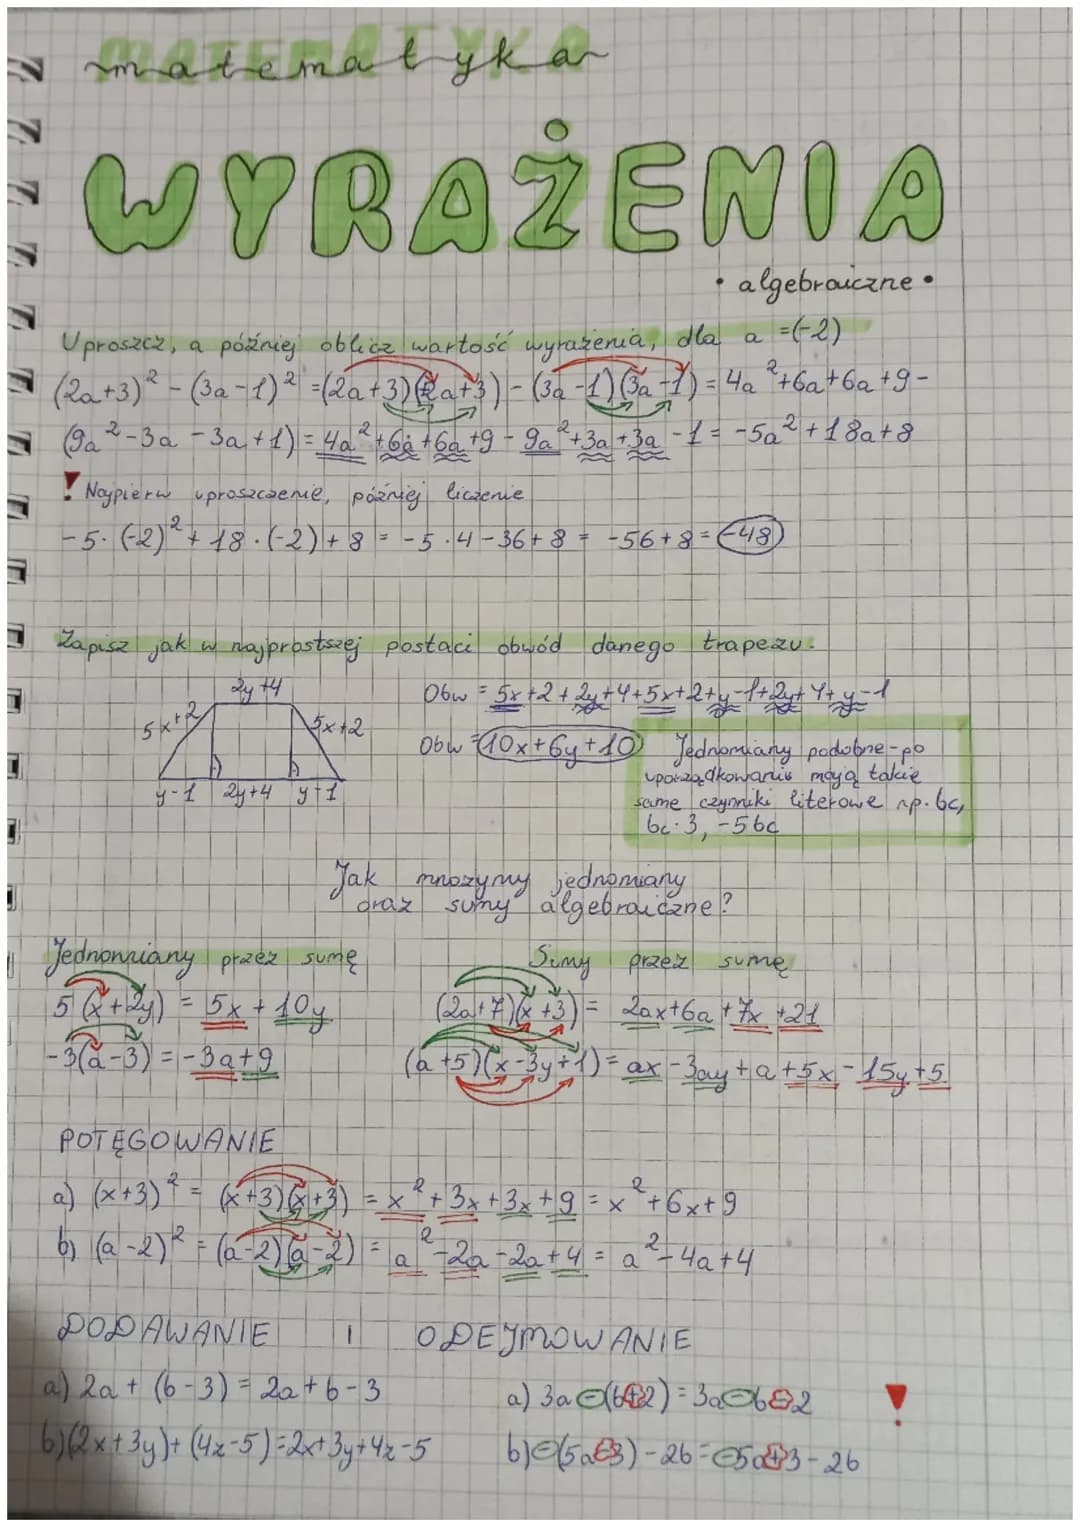 MATEMATYKA
matematyka
WYRAŻENIA
• algebraiczne •
Uprość, a później oblicz wartość wyrażenia, dla a =(-2)
(2a+3)² - (3a-1)² =(2a+3)(2a+3) - (3a-1)(3a-1) = 4a²+6a+6a+9-
(9a²-3a-3a+1) = 4a²+6a+6a+9-9a²+3a+3a-1 = -5a²+18a+8
! Najpierw uproszczenie, później liczenie
-5·(-2)²+18·(-2)+8 = -5·4-36+8 = -56+8=-48
Zapisz jak w najprostszej postaci obwód danego trapezu.
2y+4
5x+2
5x+2
y-1 2y+4 y-1
Obw = 5x+2+2y+4+5x+2+y-1+2y+4+y-1
Obw = 10x+6y+10
Jednomiany podobne-po
uporządkowaniu mają takie
same czynniki literowe np. bc,
bc·3, -5bc
Jak mnożymy jednomiany
oraz sumy algebraiczne?
Jednomiany przez sumę
5(x+2y) = 5x+10y
-3(a-3) = -3a+9
Sumy przez sumę
(2a+7)(x+3) = 2ax+6a+7x+21
(a+5)(x-3y+1) = ax-3ay+a+5x-15y+5
POTĘGOWANIE
a) (x+3)² = (x+3)(x+3) = x²+3x+3x+9 = x²+6x+9
b) (a-2)² = (a-2)(a-2) = a²-2a-2a+4 = a²-4a+4
DODAWANIE I ODEJMOWANIE
a) 2a+(b-3) = 2a+b-3
b)(2x+3y)+(4z-5)=2x+3y+4z-5
a) 3a-(b+2)=3a-b-2 !
b)-(5a-3)-2b=-5a+3-2b